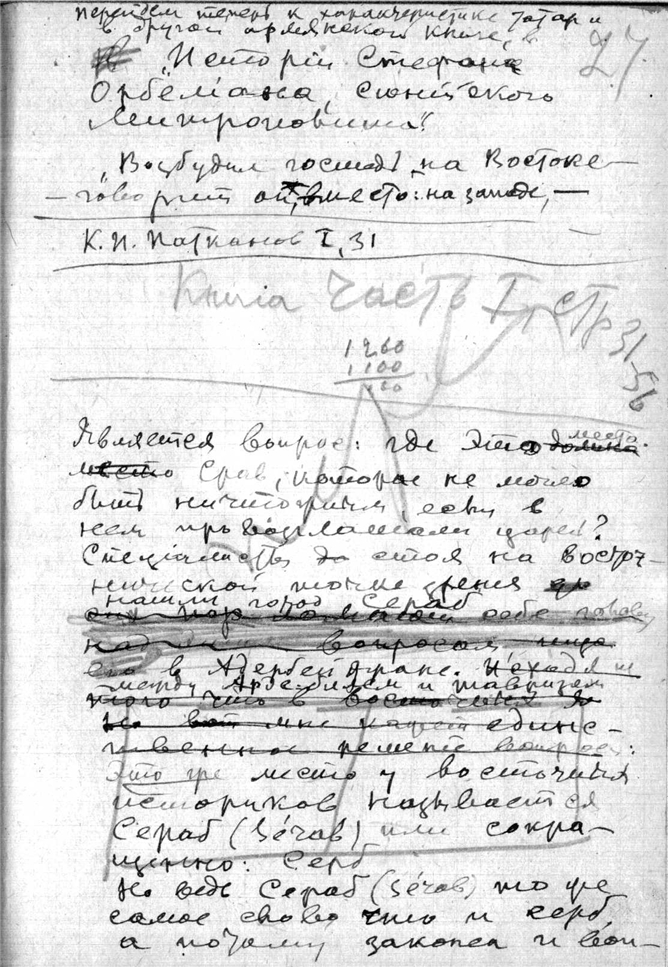 перейдем теперь к характеристике татар и
в другой армянской книге, в
27
„Истории Стефана
Орбелiана, сюнiйского
митрополита“.
„Возбудил господь на Востоке —
— говорит он, вместо: на западе, —
К. П. Паткановъ I, 31
Книга Часть I, стр 31-56
1260
1100
160
Является вопрос: где это
место
место Срав, которое не могло
быть ничтожным, если в
нем провозглашали царей?
Спецiалисты стоя на
нической точке зрения
нашли город Сераб
себе голову
над вопросом
его в Адербейджане. Исходя из
между Ардебилем и Тавризом
того что в
но вот мне единс-
твенное решенiе вопроса:
Это же место у восточных
историков называется
Сераб (Sérab) или сокра-
щенно: Серб
Но ведь Сераб (Sérab) то же
самое слово что и серб,
а потому